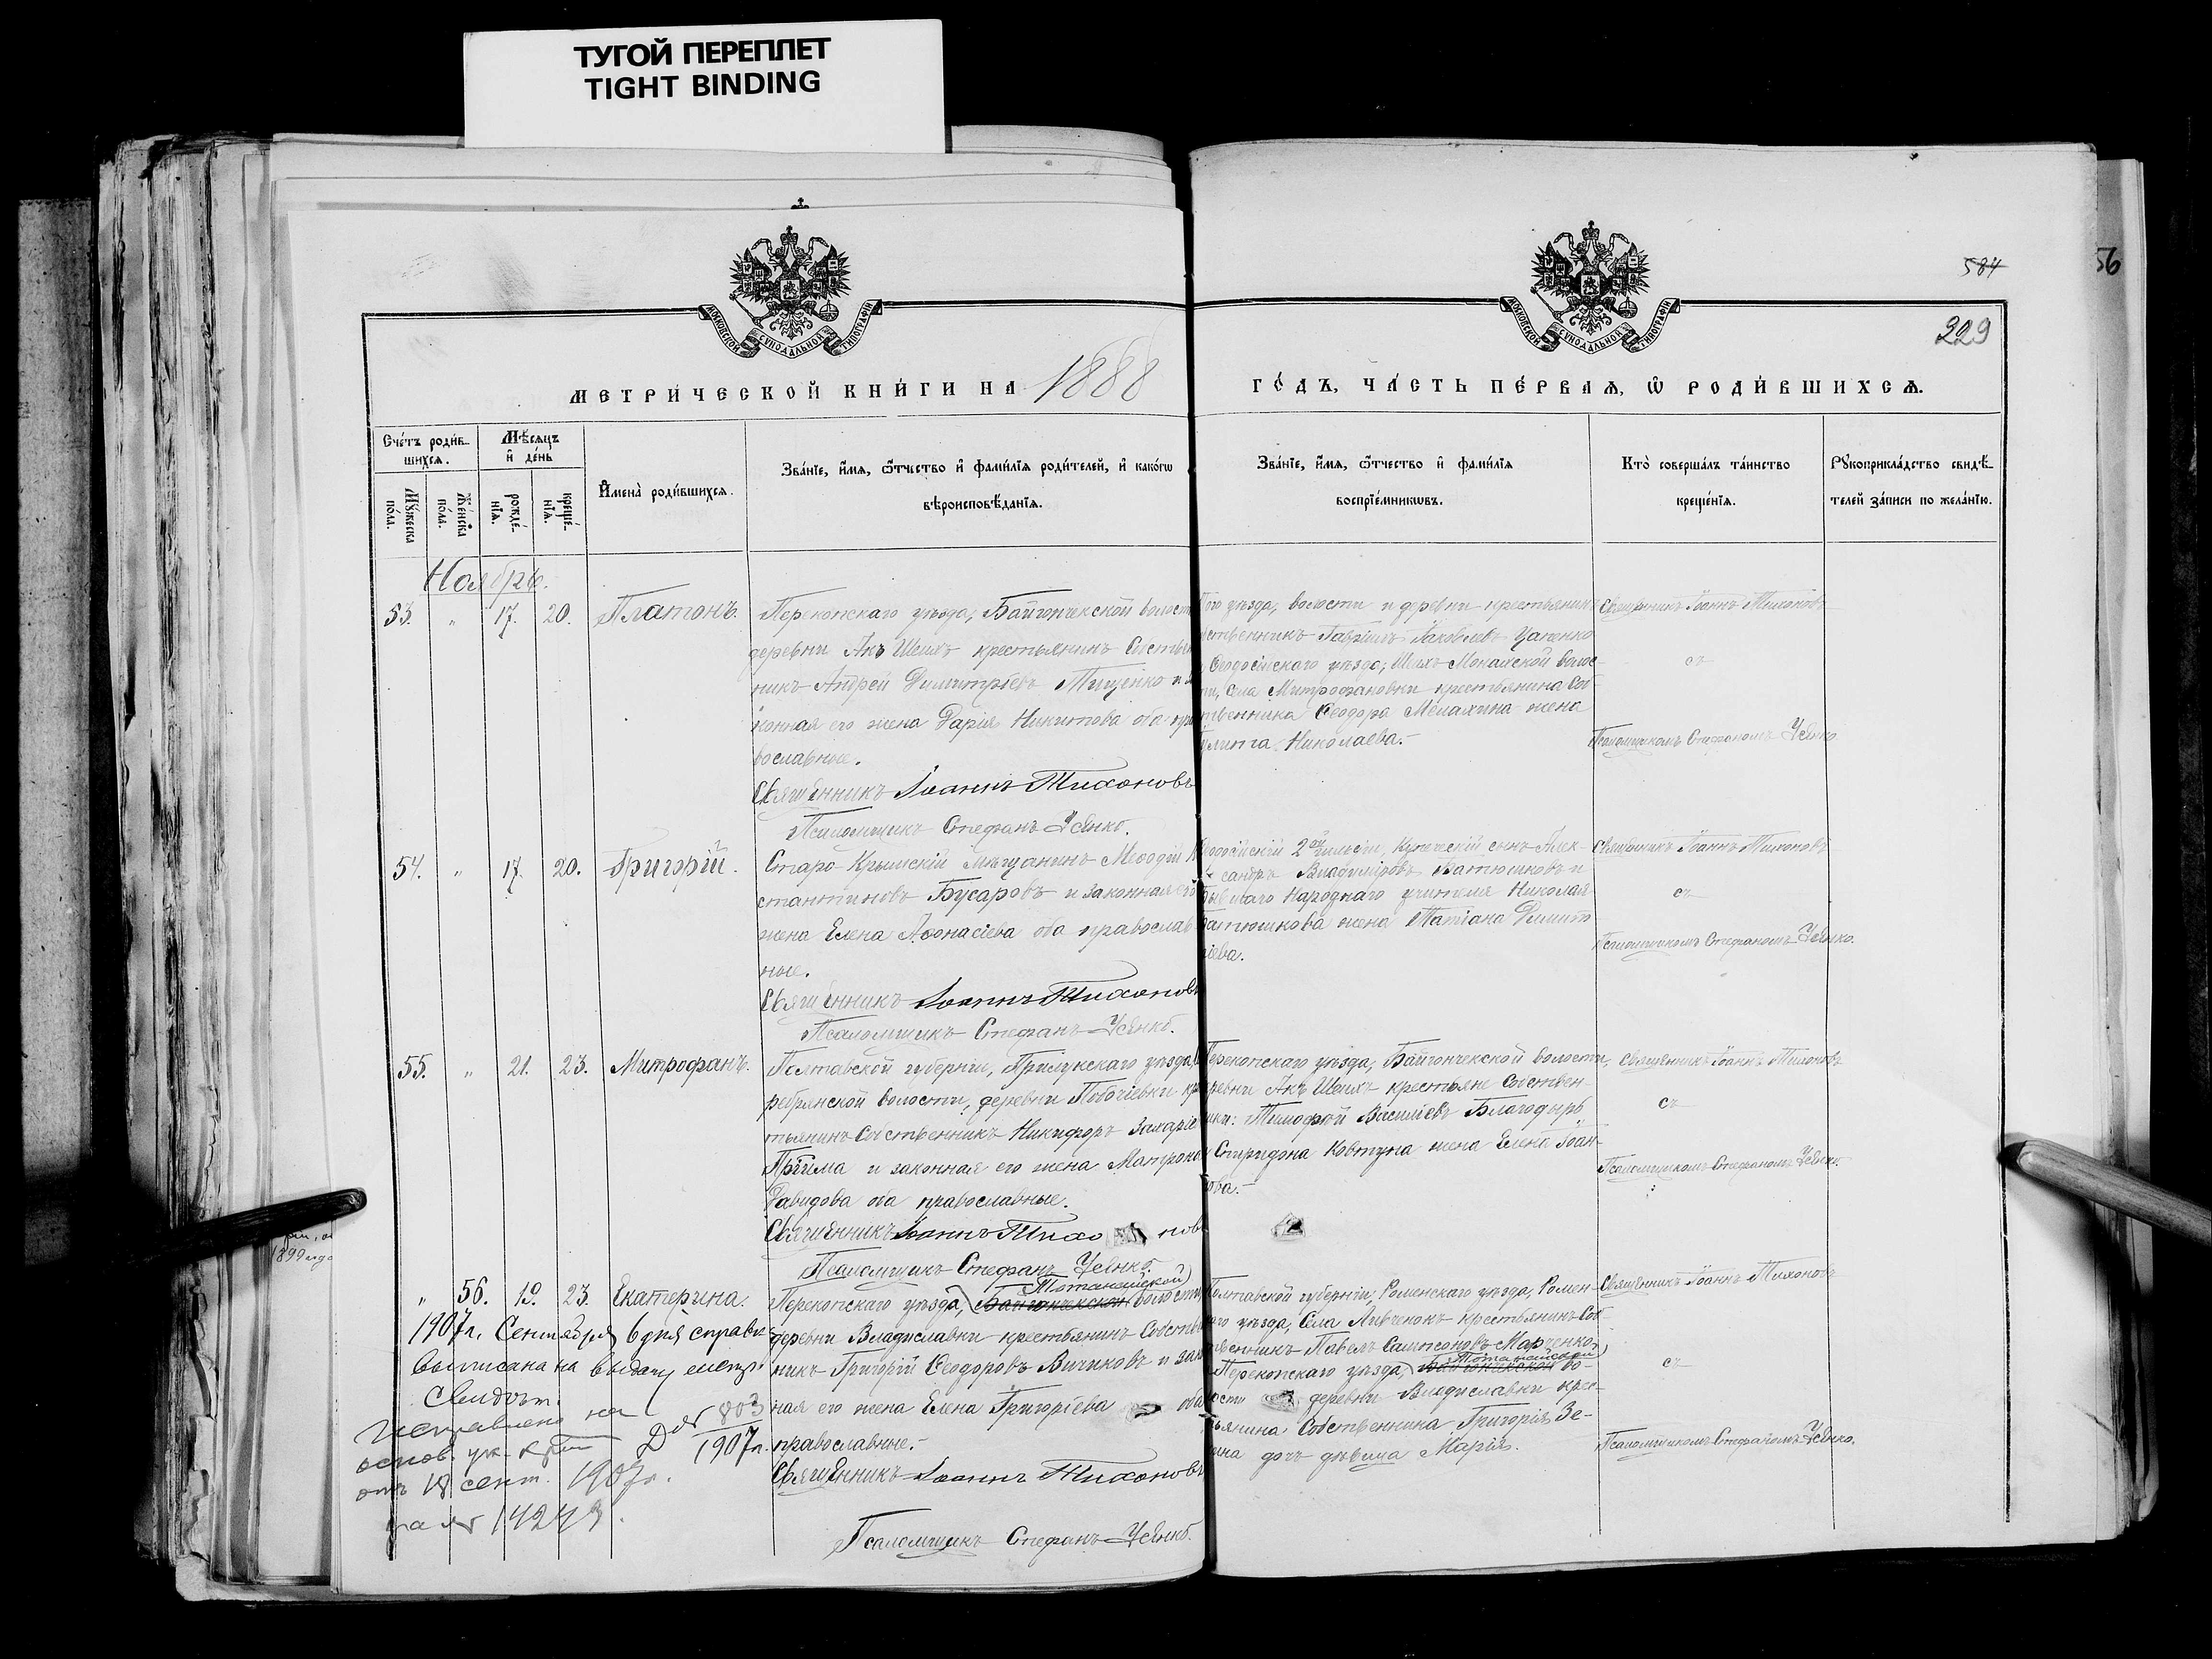 ТУГОЙ ПЕРЕПЛЕТ
TIGHT BINDING
56
584
329
МОСКОВСКОЙ СѴНОДАЛЬНОЙ ТИПОГРАФІИ
МОСКОВСКОЙ СѴНОДАЛЬНОЙ ТИПОГРАФІИ
МЕТРИ́ЧЕСКОЙ КНИ́ГИ НА 1888
ГО́ДЪ, ЧА́СТЬ ПЕ́РВАѦ, Ѿ РОДИ́ВШИХСѦ.
Сче́тъ роди́в-
шихсѧ.
Мѣ́сѧцъ
и҆ де́нь
Мꙋ́жеска по́ла.
Же́нска по́ла.
рожде́-
нїѧ.
креще́-
нїѧ.
И҆мена̀ роди́вшихсѧ.
Зва́нїе, и҆́мѧ, ѻ҆́тчество и҆ фами́лїѧ роди́телей, и҆ како́гѡ
вѣроисповѣ́данїѧ.
Зва́нїе, и҆́мѧ, ѻ҆́тчество и҆ фами́лїѧ
воспрїе́мникѡвъ.
Кто̀ соверша́лъ та́инство
креще́нїѧ.
Рꙋкоприкла́дство свидѣ́-
телей за́писи по жела́нїю.
Ноябрь.
53. " 17. 20. Платонъ.
Перекопскаго уѣзда, Байгончекской волост
деревни Акъ Шеихъ крестьянинъ Собствен
никъ Андрей Димитріевъ Тищенко и за
конная его жена Дарія Никитова оба пра
вославные.
Священникъ Іоаннъ Тихоновъ
Псаломщикъ Стефанъ Усенко.
того уѣзда, волости и деревни крестьянинъ
бственникъ Гавріилъ Іаковлевъ Цапенко
и Ѳеодосійскаго уѣзда, Шихъ Монайской волос-
ти, села Митрофановки крестьянина Соб-
ственника Ѳеодора Мелахина жена
Николаева.-
Священникъ Іоаннъ Тихоновъ
съ
Псаломщикомъ Стефаномъ Усенко
54. " 17. 20. Григорій.
Старо-Крымскій мѣщанинъ Меѳодій Кон
стантиновъ Бусаровъ и законная его
жена Елена Аѳонасіева оба православ
ные.
Священникъ Іоаннъ Тихоновъ
Псаломщикъ Стефанъ Усенко.
Ѳеодосійскій 2ой гильдіи, Купеческій сынъ Алек-
сандръ Владиміровъ Батюшковъ и
бывшаго Народнаго учителя Николая
Батюшкова жена Татіана Димит
ріева.
Священникъ Іоаннъ Тихоновъ
съ
Псаломщикомъ Стефаномъ Усенко.
55. " 21. 23. Митрофанъ.
Полтавской губерніи, Прилукскаго уѣзда, Се
ребрянской волости, деревни Побочіевки крес
тьянинъ Собственникъ Никифоръ Захаріе
Пріима и законная его жена Матрона
Давидова оба православные.
Священникъ Іоаннъ Тихо новъ
Псаломщикъ Стефанъ Усенко.
Перекопскаго уѣзда, Байгончекской волости,
деревни Акъ Шеихъ крестьяне Собствен-
ники: Тимофей Василіевъ Благодырь
и Спиридона Ковтуна жена Елена Іоан-
нова.-
Священникъ Іоаннъ Тихоновъ
съ
Псаломщикомъ Стефаномъ Усенко.
" 56. 19. 23. Екатерина.
Потанейской)
Перекопскаго уѣзда, (Байгончекской волости,
деревни Владиславки крестьянинъ Собствен
никъ Григорій Ѳеодоровъ Вичиковъ и закон
ная его жена Елена Григоріева оба
православные.-
Священникъ Іоаннъ Тихоновъ
Псаломщикъ Стефанъ Усенко.
Полтавской губерніи, Роменскаго уѣзда, Ромен-
скаго уѣзда, Села Ливченокъ крестьянинъ Соб-
ственникъ Павелъ Сампсоновъ Марченко,
Потанейской)
и Перекопскаго уѣзда, (Байгончекской во-
лости деревни Владиславки крес-
тьянина Собственника Григорія Зе-
нина дочь дѣвица Марія.
Священникъ Іоаннъ Тихоновъ
съ
Псаломщикомъ Стефаномъ Усенко.
1907г. Сентября 6 дня справка
выписана на выдачу метр.
Свидѣт.
Исправлено на
основ. ук.
отъ 18 сент. 1907г.
за № 14243.
Д № 803
1907г.
1899 года